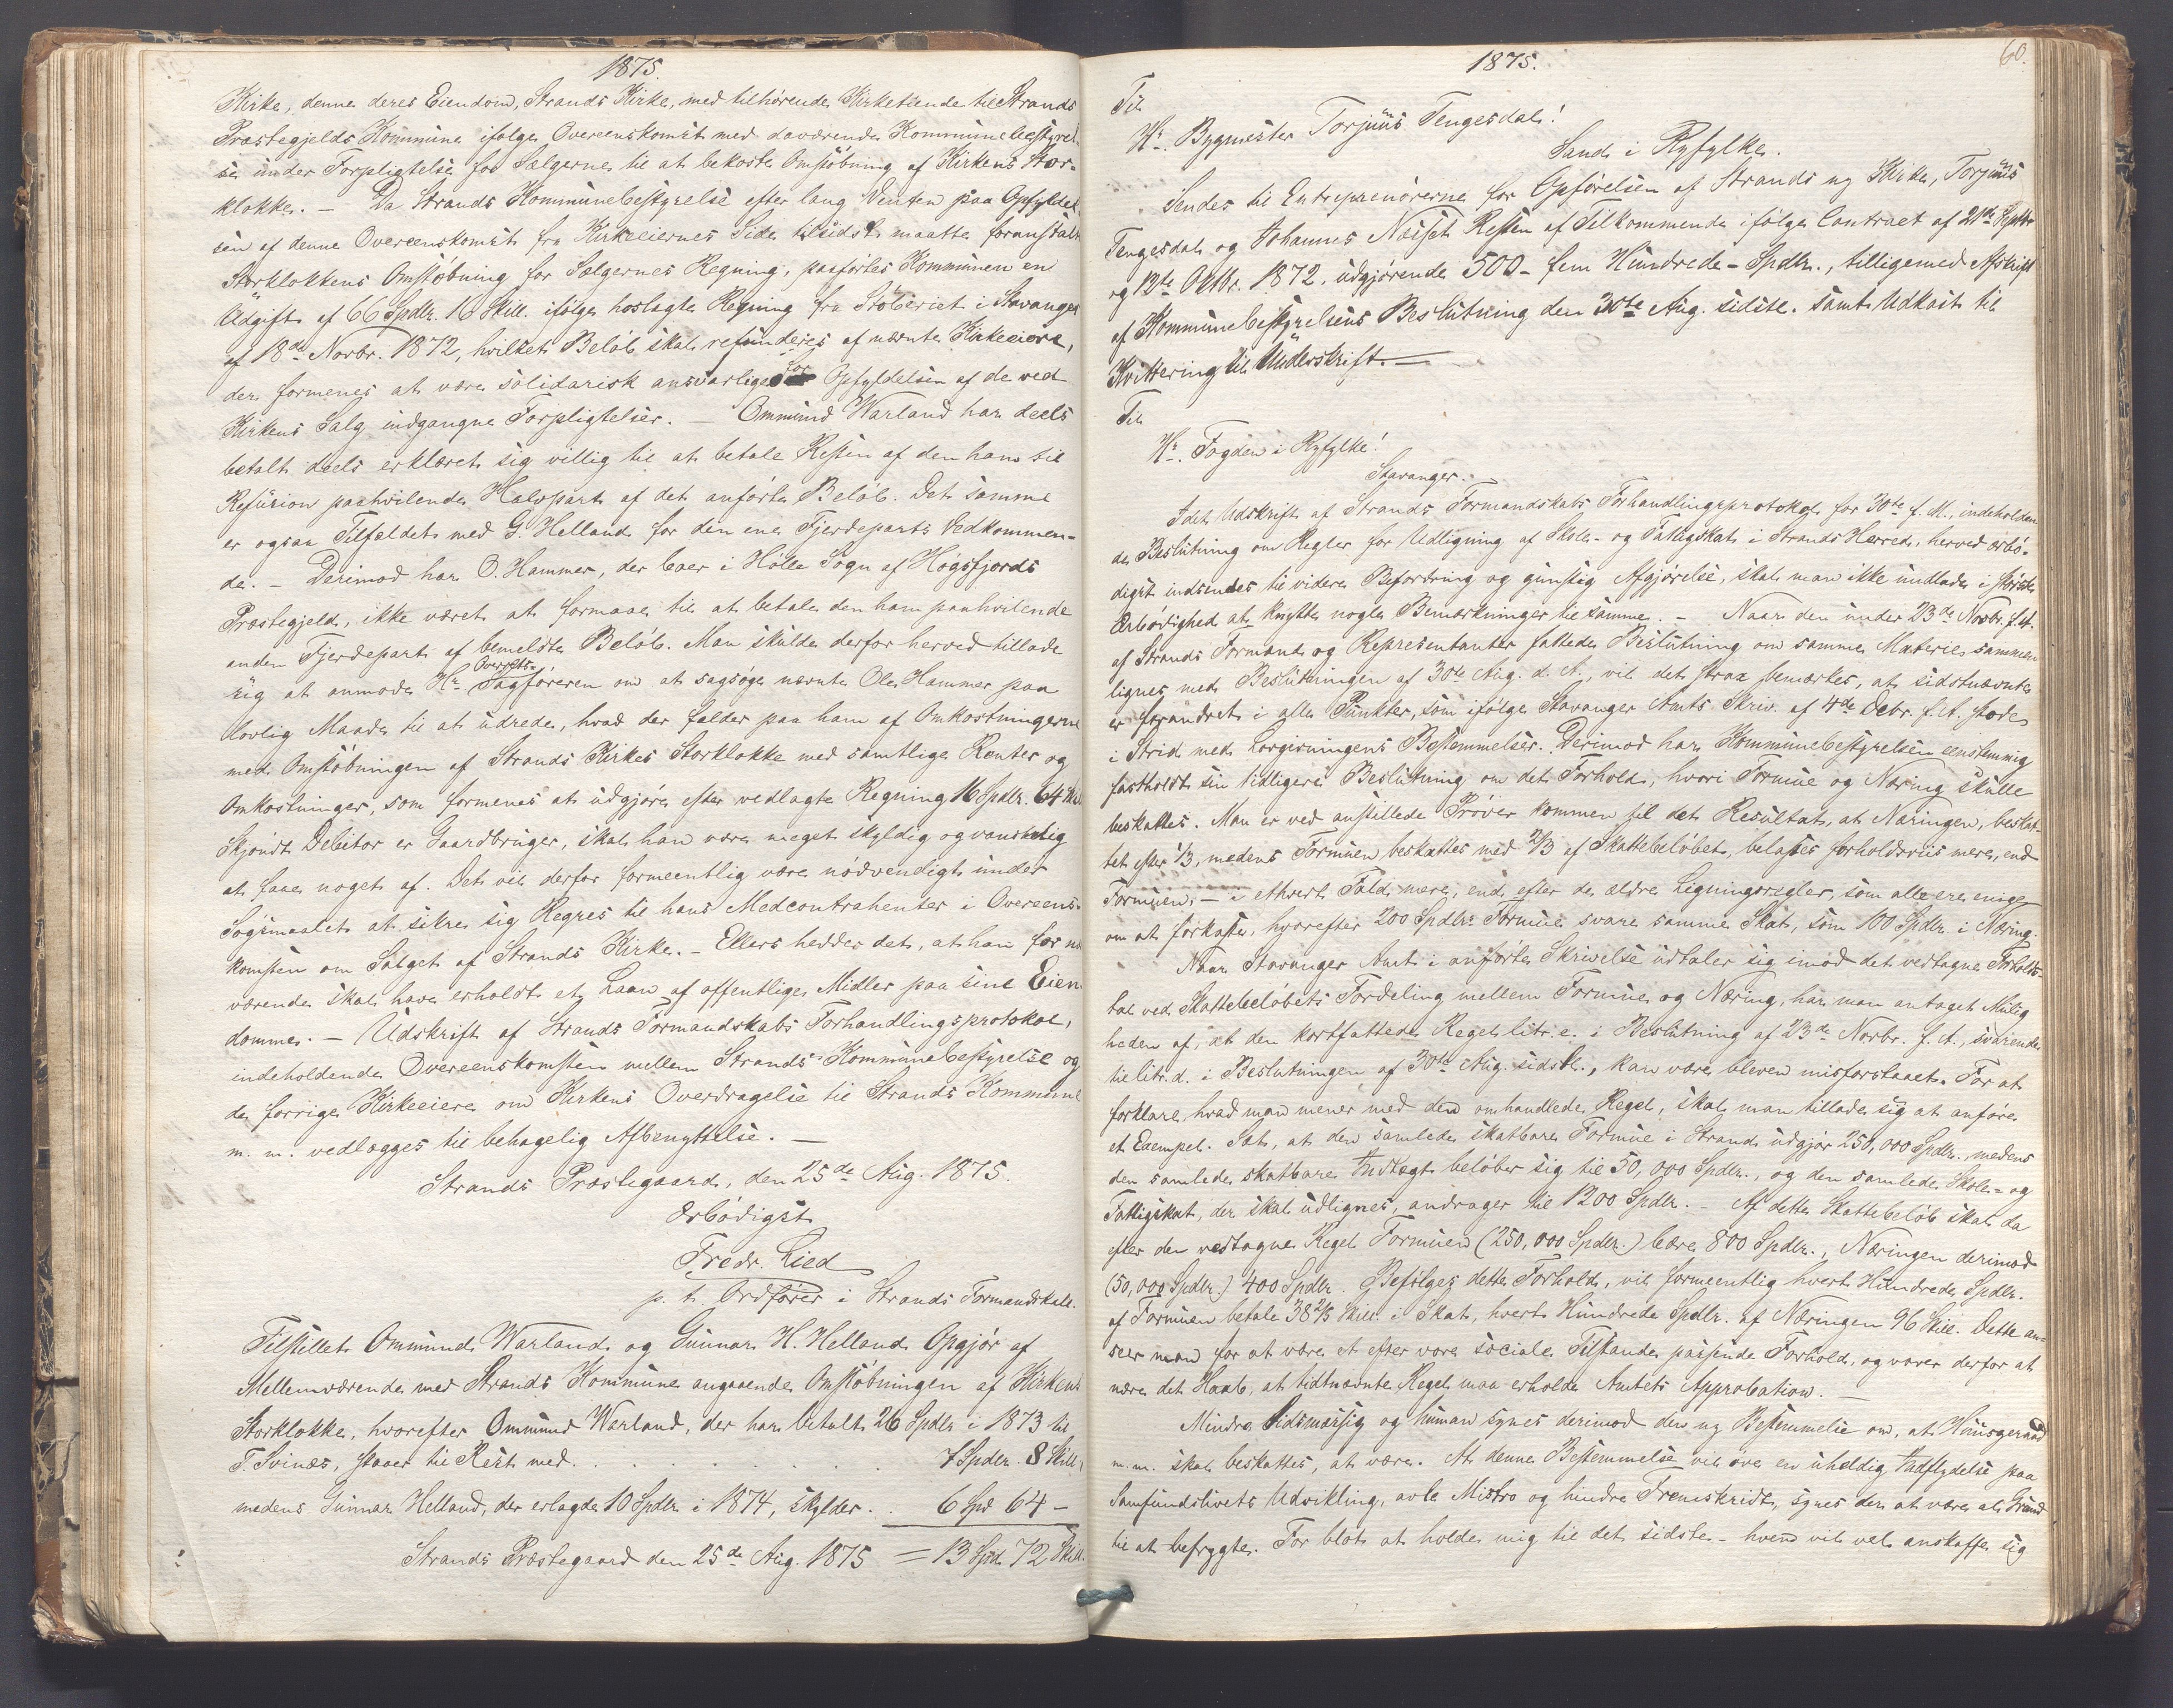 1875.
Kirke, denne deres Eiendom, Strands Kirke, med tilhørende Kirketiende til Strands
Præstegjelds Kommune ifølge Overeenskomst med daværende Kommunebestyrel-
se under Forpligtelse for Sælgerne til at bekoste Omstøbning af Kirkens Stor-
klokke. – Da Strands Kommunebestyrelse efter lang Venten paa Opfyldel-
sen af denne Overeenskomst fra Kirkeeiernes Side tilsidst maatte foranstalte
Storklokkens Omstøbning for Sælgernes Regning, paaførtes Kommunen en
Udgift af 66 Spdlr. 16 Skill. ifølge hoslagte Regning fra Støberiet i Stavanger
af 18de Novbr. 1872, hvilket Beløb skal refunderes af nævnte Kirkeeiere,
der formenes at være solidarisk ansvarlige for Opfyldelsen af de ved
Kirkens Salg indgangne Forpligtelser. Ommund Warland har deels
betalt deels erklæret sig villig til at betale Resten af den ham til
Refusion paahvilende Halvpart af det anførte Beløb. Det samme
er ogsaa Tilfældet med G. Helland for den ene Fjerdeparts Vedkommen-
de. – Derimod har O. Hammer, der boer i Hølle Sogn af Høgsfjords
Præstegjeld, ikke været at formaae til at betale den ham paahvilende
anden Fjerdepart af bemeldte Beløb. Man skulde derfor herved tillade
sig at anmode Hr. Overrets-Sagføreren om at sagsøge nævnte Ole Hammer paa
lovlig Maade til at udrede, hvad der falder paa ham af Omkostningerne
med Omstøbningen af Strands Kirkes Storklokke med samtlige Renter og
Omkostninger, som formenes at udgjøre efter vedlagte Regning 16 Spdlr. 64 Skil
Skjøndt Debitor er Gaardbruger, skal han være meget skyldig og vanskelig
at faae noget af. Det vil derfor formeentlig være nødvendigt under
Søgsmaalet at sikre sig Regres til hans Medcontrahenter i Overeens-
komsten om Salget af Strands Kirke. – Ellers hedder det, at han for nu
værende skal have erholdt et Laan af offentlige Midler paa sine Eien-
domme. – Udskrift af Strands Formandskabs Forhandlingsprotokol,
indeholdende Overeenskomsten mellem Strands Kommunebestyrelse og
de forrige Kirkeeiere om Kirkens Overdragelse til Strands Kommune
m. m. vedlægges til behagelig Afbenyttelse. –
Strands Præstegaard, den 25de Aug. 1875.
Ærbødigst
Fredr. Lied
p. t. Ordfører i Strands Formandskab.
Tilstillet Ommund Warland og Gunnar H. Helland Opgjør af
Mellemværende med Strands Kommune angaaende Omstøbningen af Kirkens
Storklokke, hvorefter Ommund Warland, der har betalt 26 Spdlr i 1873 til
T. Svinæs, staaer til Rest med . . . . . . . 7 Spdlr. 8 Skill,
medens Gunnar Helland, der erlagde 10 Spdlr i 1874, skylder . . 6 Spd 64 –
Strands Præstegaard den 25de Aug. 1875 = 13 Spd. 72 Skill.
60.
1875.
Til
Hr. Bygmester Torjuus Tengesdal!
Sand i Ryfylke.
Sendes til Entreprenørerne for Opførelsen af Strands ny Kirke, Torjuus
Tengesdal og Johannes Næset Resten af Tilkommende ifølge Contract af 21de Septbr
og 12te Octbr. 1872, udgjørende 500 – fem Hundrede – Spdlr., tilligemed Afskrift
af Kommunebestyrelsens Beslutning den 30te Aug. sidste. samt Udkast til
Kvittering til Underskrift. –
Til
Hr. Fogden i Ryfylke!
Stavanger.
Idet Udskrift af Strands Formandskabs Forhandlingsprotokol for 30te f. M., indeholden-
de Beslutning om Regler for Udligning af Skole- og Fattigskat i Strands Herred, herved ærbø-
digst indsendes til videre Befordring og gunstig Afgjørelse, skal man ikke undlade i største
Ærbødighed at knytte nogle Bemærkninger til samme. – Naar den under 23de Novbr. f. A.
af Strands Formænd og Repræsentanter fattede Beslutning om samme Materie sammen
lignes med Beslutningen af 30te Aug. d. A., vil det strax bemærkes, at sidstnævnte
er forandret i alle Punkter, som ifølge Stavanger Amts Skriv. af 4de Debr. f. A. stode
i Strid med Lovgivningens Bestemmelser. Derimod har Kommunebestyrelsen eenstemmig
fastholdt sin tidligere Beslutning om det Forhold, hvori Formue og Næring skulle
beskattes. Man er ved anstillede Prøver kommen til det Resultat, at Næringen, beskat-
tet efter 1/3, medens Formuen beskattes med 2/3 af Skattebeløbet, belastes forholdsviis mere, end
Formuen, – i ethvert Fald mere, end efter de ældre Ligningsregler, som alle ere enige
om at forkaste, hvorefter 200 Spdlrs Formue svare samme Skat, som 100 Spdlr. i Næring.
Naar Stavanger Amt i anførte Skrivelse udtaler sig imod det vedtagne Forholds-
tal ved Skattebeløbets Fordeling mellem Formue og Næring, har man antaget Mulig
heden af, at den kortfattede Regel litr. e. i Beslutning af 23de Novbr. f. A., svarende
til litr. d. i Beslutningen af 30te Aug. sidstl., kan være bleven misforstaaet. For at
forklare, hvad man mener med den omhandlede Regel, skal man tillade sig at anføre
et Exempel. Sæt, at den samlede skatbare Formue i Strand udgjør 250,000 Spdlr., medens
den samlede skatbare Indtægt beløber sig til 50,000 Spdlr., og den samlede Skole- og
Fattigskat, der skal udlignes, andrager til 1200 Spdlr. – Af dette Skattebeløb skal da
efter den vedtagne Regel Formuen (250,000 Spdlr.) bære 800 Spdlr., Næringen derimod
(50,000 Spdlr.) 400 Spdlr. Befølges dette Forhold, vil formeentlig hvert Hundrede Spdlr.
af Formuen betale 38 2/5 Skill. i Skat, hvert Hundrede Spdlr. af Næringen 96 Skill. Dette an-
seer man for at være et efter vore sociale Tilstande passende Forhold, og vover derfor at
nære det Haab, at tidtnævnte Regel maa erholde Amtets Approbation. –
Mindre tidsmæssig og human synes derimod den ny Bestemmelse om, at Huusgeraad
m. m. skal beskattes, at være. At denne Bestemmelse vil øve en uheldig Indflydelse paa
Samfundslivets Udvikling, avle Mistro og hindre Fremskridt, synes der at være al Grund
til at befrygte. For blot at holde mig til det sidste – hvem vil vel anskaffe sig